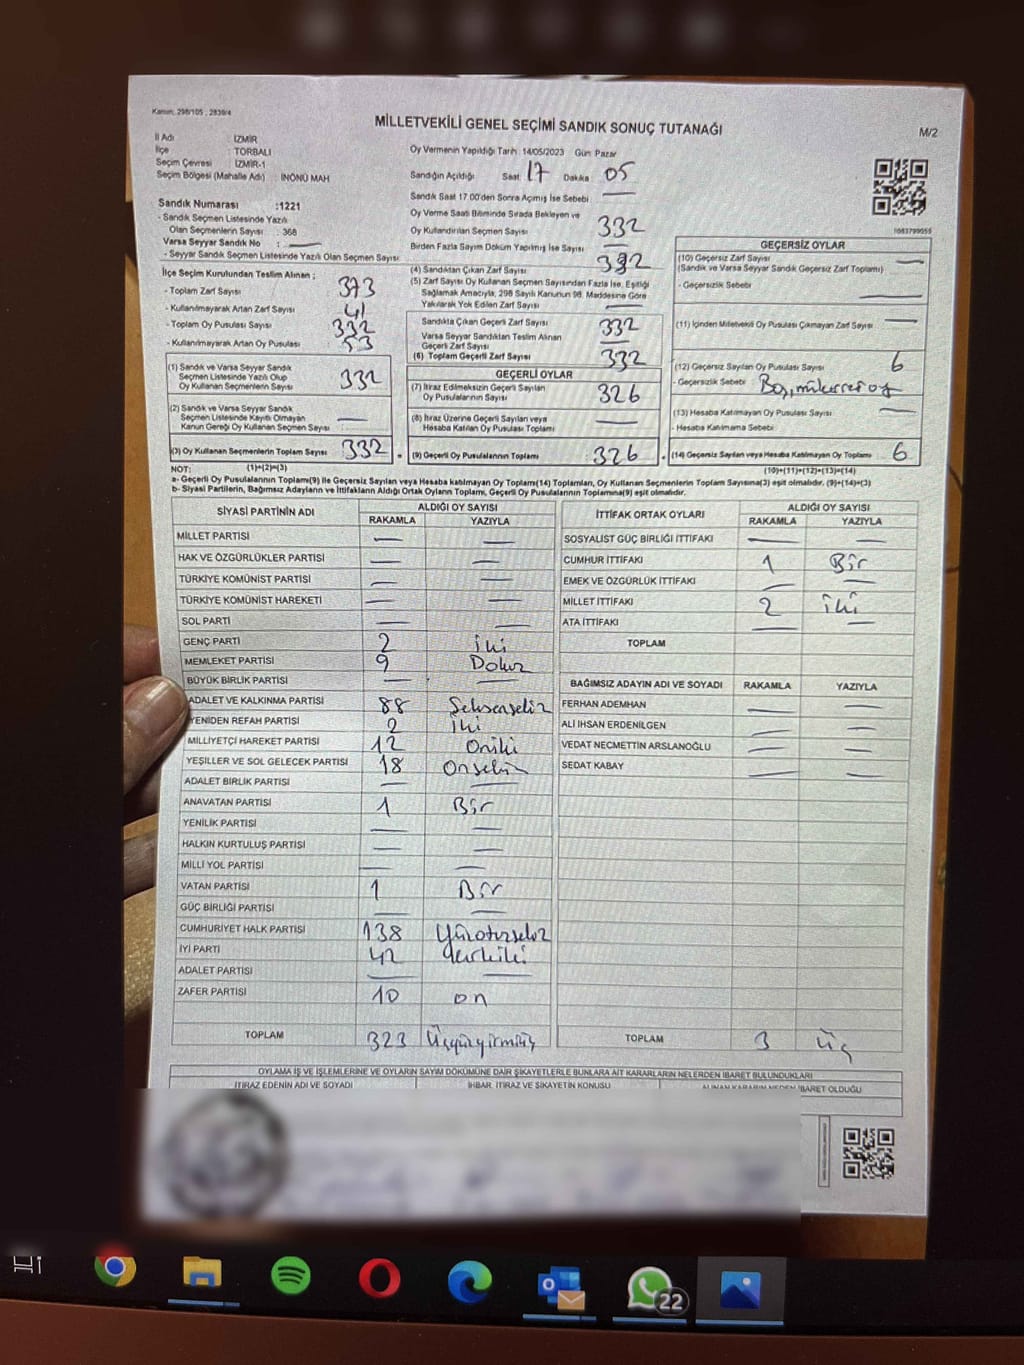 Kanun: 298/105 , 2839/4
MİLLETVEKİLİ GENEL SEÇİMİ SANDIK SONUÇ TUTANAĞI
M/2
İl Adı : İZMİR
İlçe : TORBALI
Seçim Çevresi : İZMİR-1
Seçim Bölgesi (Mahalle Adı) : İNÖNÜ MAH
Oy Vermenin Yapıldığı Tarih: 14/05/2023 Gün: Pazar
Sandığın Açıldığı Saat: 17 Dakika: 05
Sandık Saat 17.00'den Sonra Açımış İse Sebebi —
Sandık Numarası :1221
- Sandık Seçmen Listesinde Yazılı
Olan Seçmenlerin Sayısı : 368
Varsa Seyyar Sandık No : —
- Seyyar Sandık Seçmen Listesinde Yazılı Olan Seçmen Sayısı:
Oy Verme Saati Bitiminde Sırada Bekleyen ve
Oy Kullandırılan Seçmen Sayısı 332
Birden Fazla Sayım Döküm Yapılmış İse Sayısı —
1083799055
İlçe Seçim Kurulundan Teslim Alınan ;
- Toplam Zarf Sayısı 373
- Kullanılmayarak Artan Zarf Sayısı 41
- Toplam Oy Pusulası Sayısı 332
- Kullanılmayarak Artan Oy Pusulası 53
(1) Sandık ve Varsa Seyyar Sandık
Seçmen Listesinde Yazılı Olup
Oy Kullanan Seçmenlerin Sayısı 332
(2) Sandık ve Varsa Seyyar Sandık
Seçmen Listesinde Kayıtlı Olmayan
Kanun Gereği Oy Kullanan Seçmen Sayısı : —
(3) Oy Kullanan Seçmenlerin Toplam Sayısı 332
(4) Sandıktan Çıkan Zarf Sayısı 332
(5) Zarf Sayısı Oy Kullanan Seçmen Sayısından Fazla İse, Eşitliği
Sağlamak Amacıyla, 298 Sayılı Kanunun 98. Maddesine Göre
Yakılarak Yok Edilen Zarf Sayısı —
Sandıkta Çıkan Geçerli Zarf Sayısı 332
Varsa Seyyar Sandıktan Teslim Alınan
Geçerli Zarf Sayısı —
(6) Toplam Geçerli Zarf Sayısı 332
GEÇERLİ OYLAR
(7) İtiraz Edilmeksizin Geçerli Sayılan
Oy Pusulalarının Sayısı 326
(8) İtiraz Üzerine Geçerli Sayılan veya
Hesaba Katılan Oy Pusulası Toplamı —
(9) Geçerli Oy Pusulalarının Toplamı 326
GEÇERSİZ OYLAR
(10) Geçersiz Zarf Sayısı —
(Sandık ve Varsa Seyyar Sandık Geçersiz Zarf Toplamı)
- Geçersizlik Sebebi —
(11) İçinden Milletvekili Oy Pusulası Çıkmayan Zarf Sayısı —
(12) Geçersiz Sayılan Oy Pusulası Sayısı 6
- Geçersizlik Sebebi Boş, mükerrer oy
(13) Hesaba Katılmayan Oy Pusulası Sayısı —
- Hesaba Katılmama Sebebi
(14) Geçersiz Sayılan veya Hesaba Katılmayan Oy Toplamı 6
NOT: (1)+(2)=(3) (10)+(11)+(12)+(13)=(14)
a- Geçerli Oy Pusulalarının Toplamı(9) ile Geçersiz Sayılan veya Hesaba katılmayan Oy Toplamı(14) Toplamları, Oy Kullanan Seçmenlerin Toplam Sayısına(3) eşit olmalıdır. (9)+(14)=(3)
b- Siyasi Partilerin, Bağımsız Adayların ve İttifakların Aldığı Ortak Oyların Toplamı, Geçerli Oy Pusulalarının Toplamına(9) eşit olmalıdır.
SİYASİ PARTİNİN ADI ALDIĞI OY SAYISI
RAKAMLA YAZIYLA
MİLLET PARTİSİ — —
HAK VE ÖZGÜRLÜKLER PARTİSİ — —
TÜRKİYE KOMÜNİST PARTİSİ — —
TÜRKİYE KOMÜNİST HAREKETİ — —
SOL PARTİ — —
GENÇ PARTİ 2 iki
MEMLEKET PARTİSİ 9 Dokuz
BÜYÜK BİRLİK PARTİSİ — —
ADALET VE KALKINMA PARTİSİ 88 Seksensekiz
YENİDEN REFAH PARTİSİ 2 iki
MİLLİYETÇİ HAREKET PARTİSİ 12 Oniki
YEŞİLLER VE SOL GELECEK PARTİSİ 18 Onsekiz
ADALET BİRLİK PARTİSİ — —
ANAVATAN PARTİSİ 1 Bir
YENİLİK PARTİSİ — —
HALKIN KURTULUŞ PARTİSİ — —
MİLLİ YOL PARTİSİ — —
VATAN PARTİSİ 1 Bir
GÜÇ BİRLİĞİ PARTİSİ — —
CUMHURİYET HALK PARTİSİ 138 Yüzotuzsekiz
İYİ PARTİ 42 Kırkiki
ADALET PARTİSİ — —
ZAFER PARTİSİ 10 on
TOPLAM 323 Üçyüzyirmiüç
İTTİFAK ORTAK OYLARI ALDIĞI OY SAYISI
RAKAMLA YAZIYLA
SOSYALİST GÜÇ BİRLİĞİ İTTİFAKI — —
CUMHUR İTTİFAKI 1 Bir
EMEK VE ÖZGÜRLÜK İTTİFAKI — —
MİLLET İTTİFAKI 2 iki
ATA İTTİFAKI — —
TOPLAM
BAĞIMSIZ ADAYIN ADI VE SOYADI RAKAMLA YAZIYLA
FERHAN ADEMHAN — —
ALİ İHSAN ERDENİLGEN — —
VEDAT NECMETTİN ARSLANOĞLU — —
SEDAT KABAY — —
TOPLAM 3 Üç
OYLAMA İŞ VE İŞLEMLERİNE VE OYLARIN SAYIM DÖKÜMÜNE DAİR ŞİKAYETLERLE BUNLARA AİT KARARLARIN NELERDEN İBARET BULUNDUKLARI
İTİRAZ EDENİN ADI VE SOYADI İHBAR, İTİRAZ VE ŞİKAYETİN KONUSU ALINAN KARARIN NEDEN İBARET OLDUĞU
22